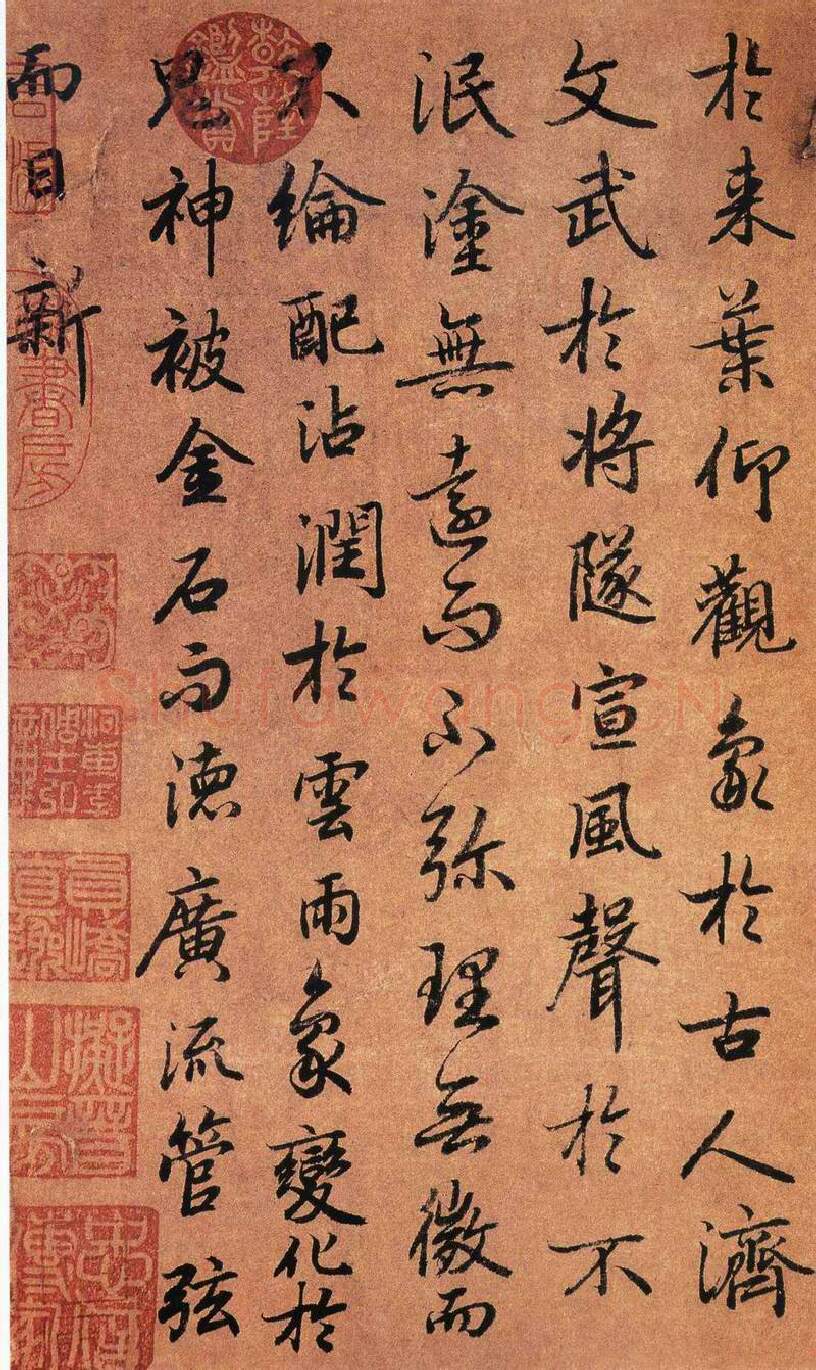 於来葉仰觀象於古人濟
文武於将隧宣風聲於不
泯塗無遠而不弥理無微而
不綸配沾潤於雲雨象變化於
鬼神被金石而德廣流管弦
而日新
乾隆鑑賞
Shufawang.CN